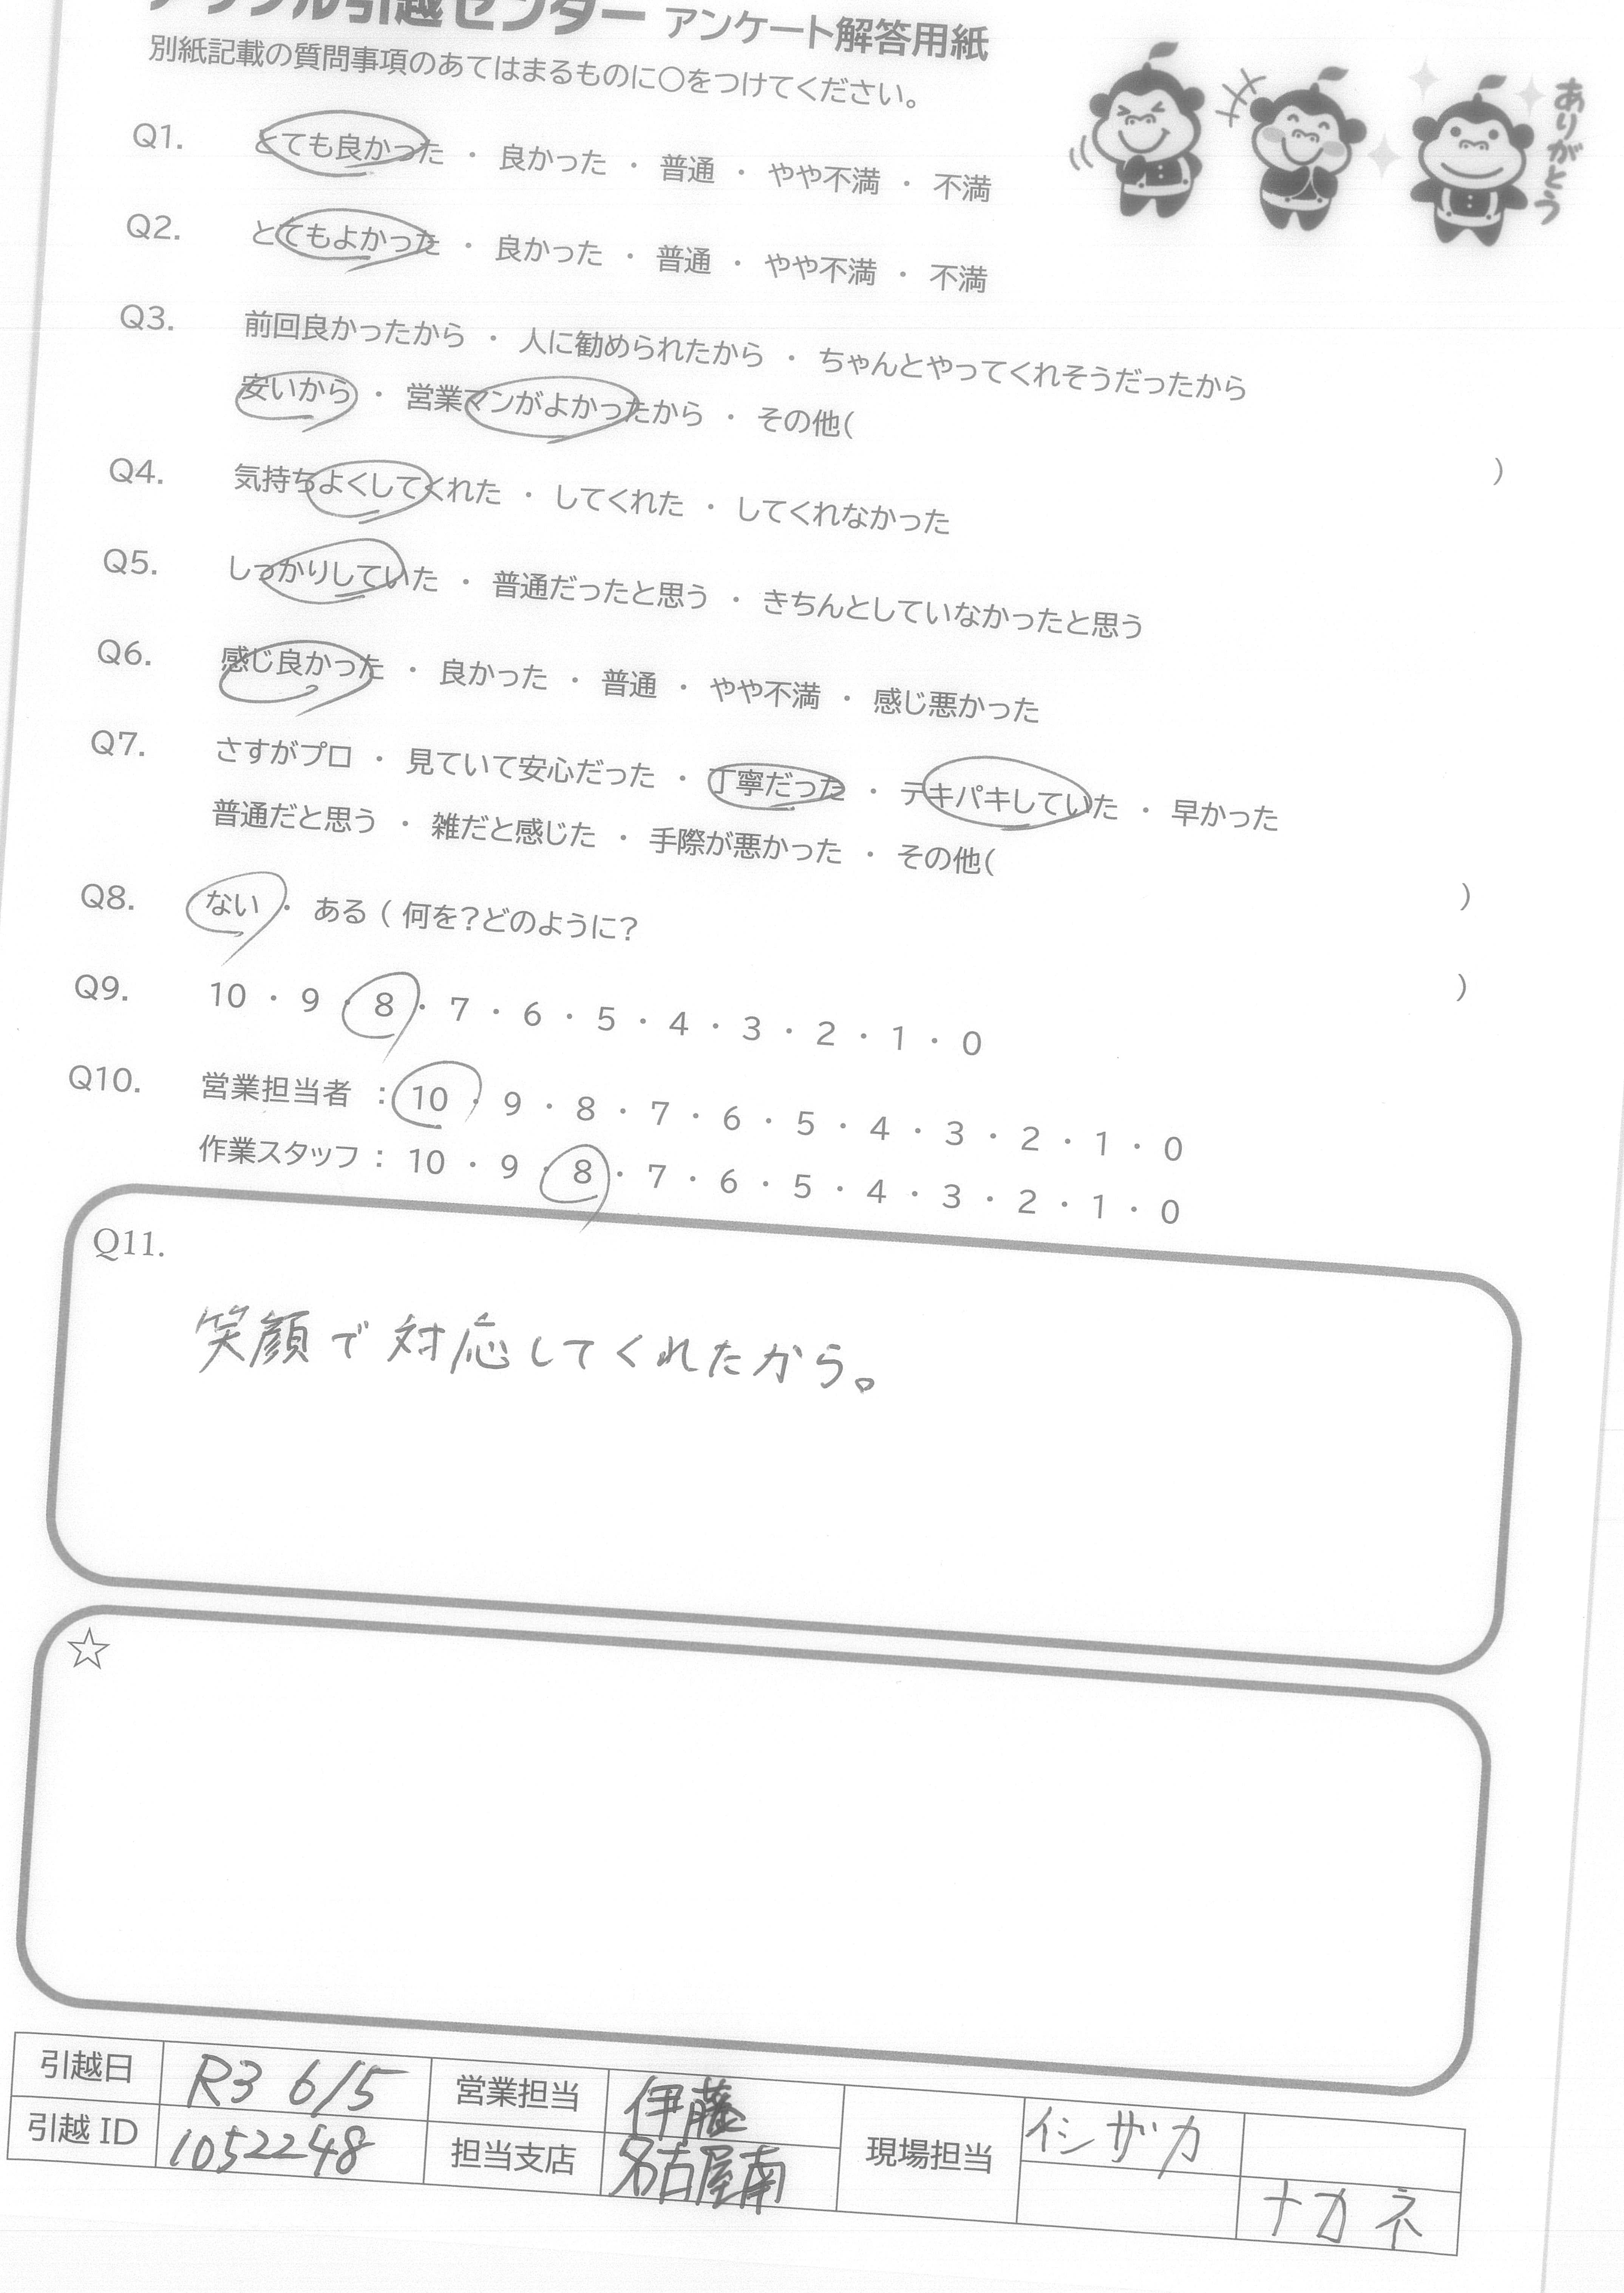 アップル引越センター アンケート解答用紙
別紙記載の質問事項のあてはまるものに○をつけてください。
ありがとう
Q1. とても良かった ・ 良かった ・ 普通 ・ やや不満 ・ 不満
Q2. とてもよかった ・ 良かった ・ 普通 ・ やや不満 ・ 不満
Q3. 前回良かったから ・ 人に勧められたから ・ ちゃんとやってくれそうだったから
安いから ・ 営業マンがよかったから ・ その他( )
Q4. 気持ちよくしてくれた ・ してくれた ・ してくれなかった
Q5. しっかりしていた ・ 普通だったと思う ・ きちんとしていなかったと思う
Q6. 感じ良かった ・ 良かった ・ 普通 ・ やや不満 ・ 感じ悪かった
Q7. さすがプロ ・ 見ていて安心だった ・ 丁寧だった ・ テキパキしていた ・ 早かった
普通だと思う ・ 雑だと感じた ・ 手際が悪かった ・ その他( )
Q8. ない ・ ある ( 何を?どのように? )
Q9. 10 ・ 9 ・ 8 ・ 7 ・ 6 ・ 5 ・ 4 ・ 3 ・ 2 ・ 1 ・ 0
Q10. 営業担当者 : 10 ・ 9 ・ 8 ・ 7 ・ 6 ・ 5 ・ 4 ・ 3 ・ 2 ・ 1 ・ 0
作業スタッフ : 10 ・ 9 ・ 8 ・ 7 ・ 6 ・ 5 ・ 4 ・ 3 ・ 2 ・ 1 ・ 0
Q11.
笑顔で対応してくれたから。
☆
引越日 R3 6/5 営業担当 伊藤 現場担当 イシザカ
引越 ID 1052248 担当支店 名古屋南 ナカネ